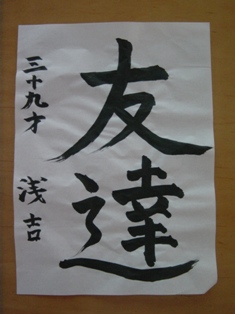 友達
三十九才 浅吉